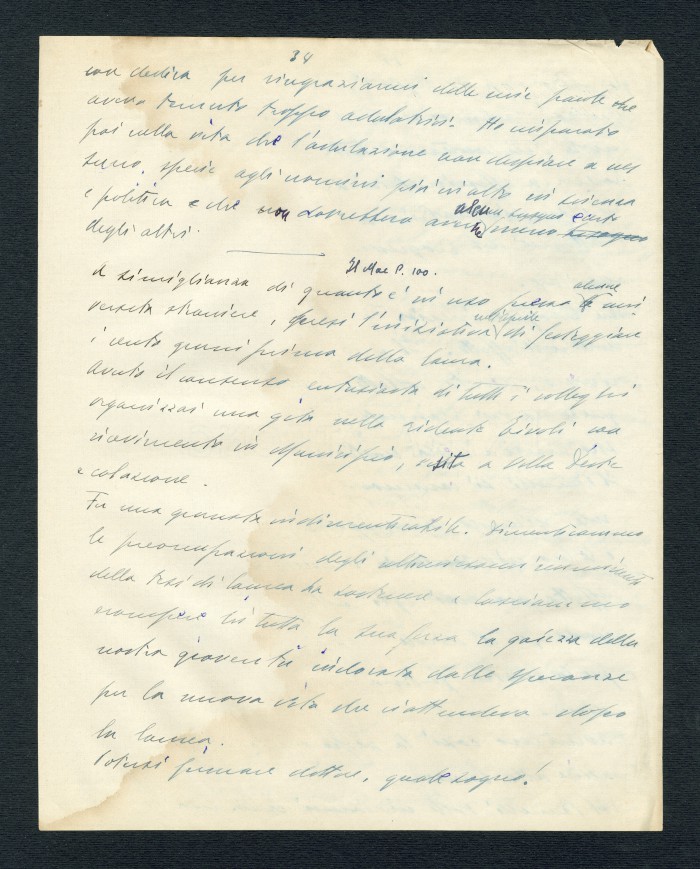 34
con dedica per ringraziarmi delle mie parole che
aveva trovato troppo adulatrici. Ho imparato
poi nella vita che l'adulazione non dispiace a nes
suno, specie agli uomini più in alto in scienza
e politica e che non dovrebbero avere alcun bisogno
degli altri.
Il Mac P. 100.
A simiglianza di quanto è in uso presso alcune uni
versità straniere, presi l'iniziativa di festeggiare
i cento giorni prima della laurea.
Avuto il consenso entusiasta di tutti i colleghi
organizzai una gita nella ridente Tivoli con
ricevimento in Municipio, visita a Villa d'Este
e colazione.
Fu una giornata indimenticabile. Dimenticammo
le preoccupazioni degli ultimissimi
della tesi di laurea da sostenere e lasciammo
erompere in tutta la sua forza la gaiezza della
nostra gioventù indorata dalle speranze
per la nuova vita che ci attendeva dopo
la laurea.
Potersi firmare dottore, quale sogno!